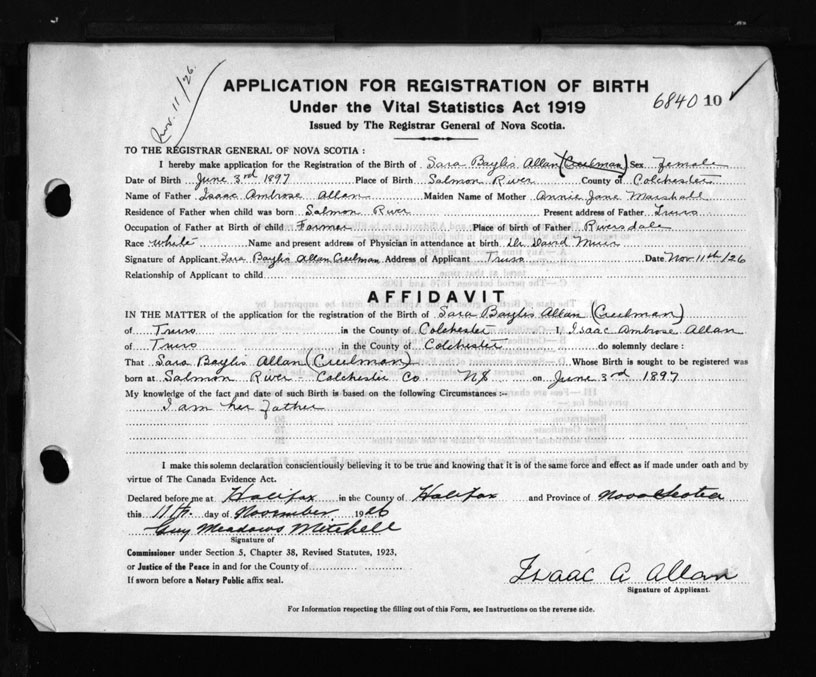 Nov. 11/26.
APPLICATION FOR REGISTRATION OF BIRTH
6840 10
Under the Vital Statistics Act 1919
Issued by The Registrar General of Nova Scotia.
TO THE REGISTRAR GENERAL OF NOVA SCOTIA :
I hereby make application for the Registration of the Birth of Sara Baylis Allan (Creelman) Sex female
Date of Birth June 3rd 1897 Place of Birth Salmon River County of Colchester
Name of Father Isaac Ambrose Allan Maiden Name of Mother Annie Jane Marshall
Residence of Father when child was born Salmon River Present address of Father Truro
Occupation of Father at Birth of child Farmer Place of birth of Father Riversdale
Race white Name and present address of Physician in attendance at birth Dr David Muir
Signature of Applicant Sara Baylis Allan Creelman Address of Applicant Truro Date Nov 11th/26
Relationship of Applicant to child
AFFIDAVIT
IN THE MATTER of the application for the registration of the Birth of Sara Baylis Allan (Creelman)
of Truro in the County of Colchester I, Isaac Ambrose Allan
of Truro in the County of Colchester do solemnly declare :
That Sara Baylis Allan (Creelman) Whose Birth is sought to be registered was
born at Salmon River Colchester Co. NS on June 3rd 1897
My knowledge of the fact and date of such Birth is based on the following Circumstances :-
I am her father
I make this solemn declaration conscientiously believing it to be true and knowing that it is of the same force and effect as if made under oath and by
virtue of The Canada Evidence Act.
Declared before me at Halifax in the County of Halifax and Province of Nova Scotia
this 11th day of November 1926
Guy Meadows Mitchell
Signature of
Commissioner under Section 5, Chapter 38, Revised Statutes, 1923,
or Justice of the Peace in and for the County of
If sworn before a Notary Public affix seal.
Isaac A Allan
Signature of Applicant.
For Information respecting the filling out of this Form, see Instructions on the reverse side.